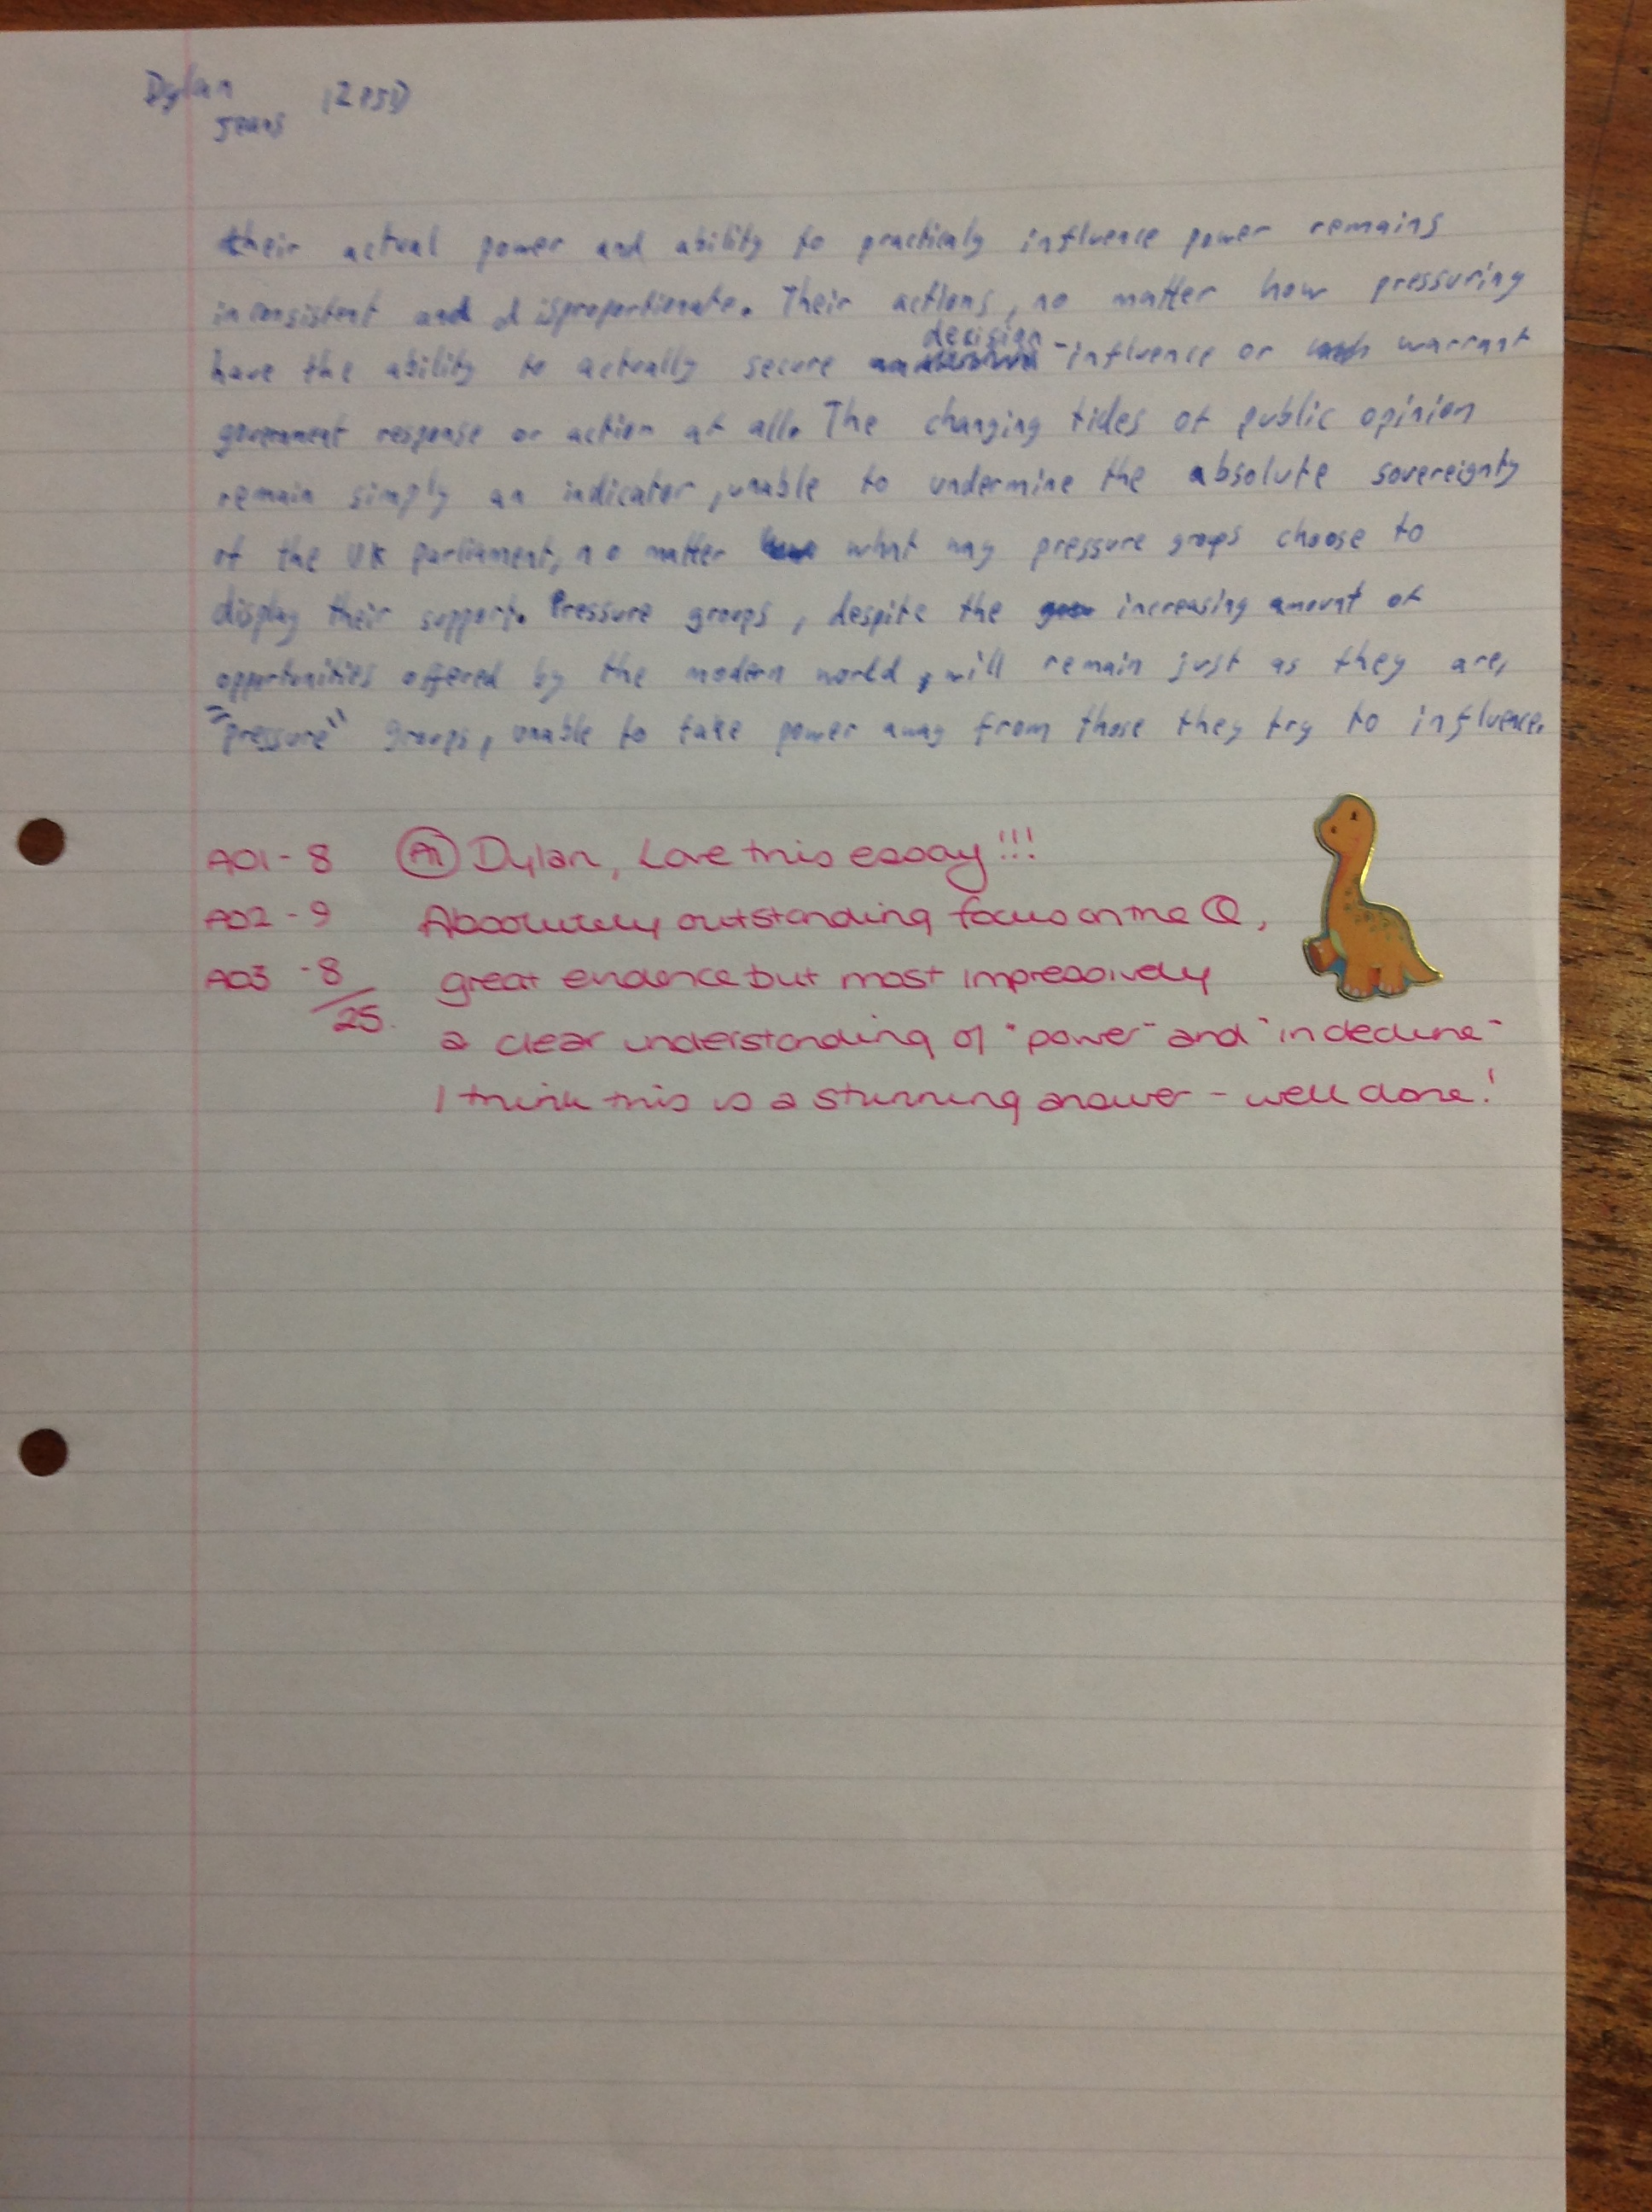 Dylan
Jeans
their actual power and ability to practicaly influence power remains
inconsistent and disproportionate. Their actions, no matter how pressuring
have the ability to actually secure decision-influence or warrant
government response or action at all. The changing tides of public opinion
remain simply an indicator, unable to undermine the absolute sovereignty
of the UK parliament, no matter what way pressure groups choose to
display their support. Pressure groups, despite the increasing amount of
opportunities offered by the modern world, will remain just as they are,
"pressure" groups, unable to take power away from those they try to influence.
AO1 - 8 Dylan, Love this essay!!!
AO2 - 9 Absolutely outstanding focus on the Q,
AO3 - 8 great evidence but most impressively
/25. a clear understanding of "power" and "in decline"
I think this is a stunning answer - well done!